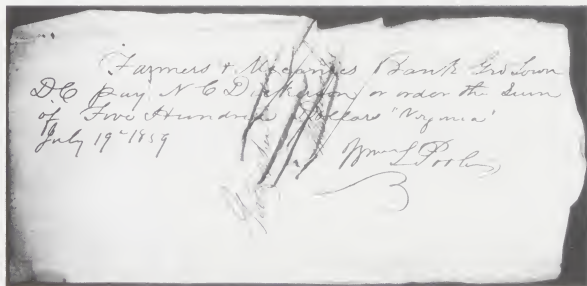 Farmers & Mecanics Bank Geo Town
DC pay N C Dickerson or order the Sum
of Five Hundred Dollars "Virginia"
July 19th 1859
Wm L Poole